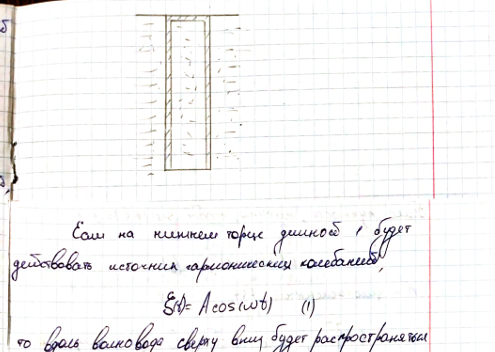 Если на нижнем торце длиной l будет
действовать источник гармонических колебаний,
ξ(t)= A cos(ωt) (1)
то вдоль волновода сверху вниз будет распространяться